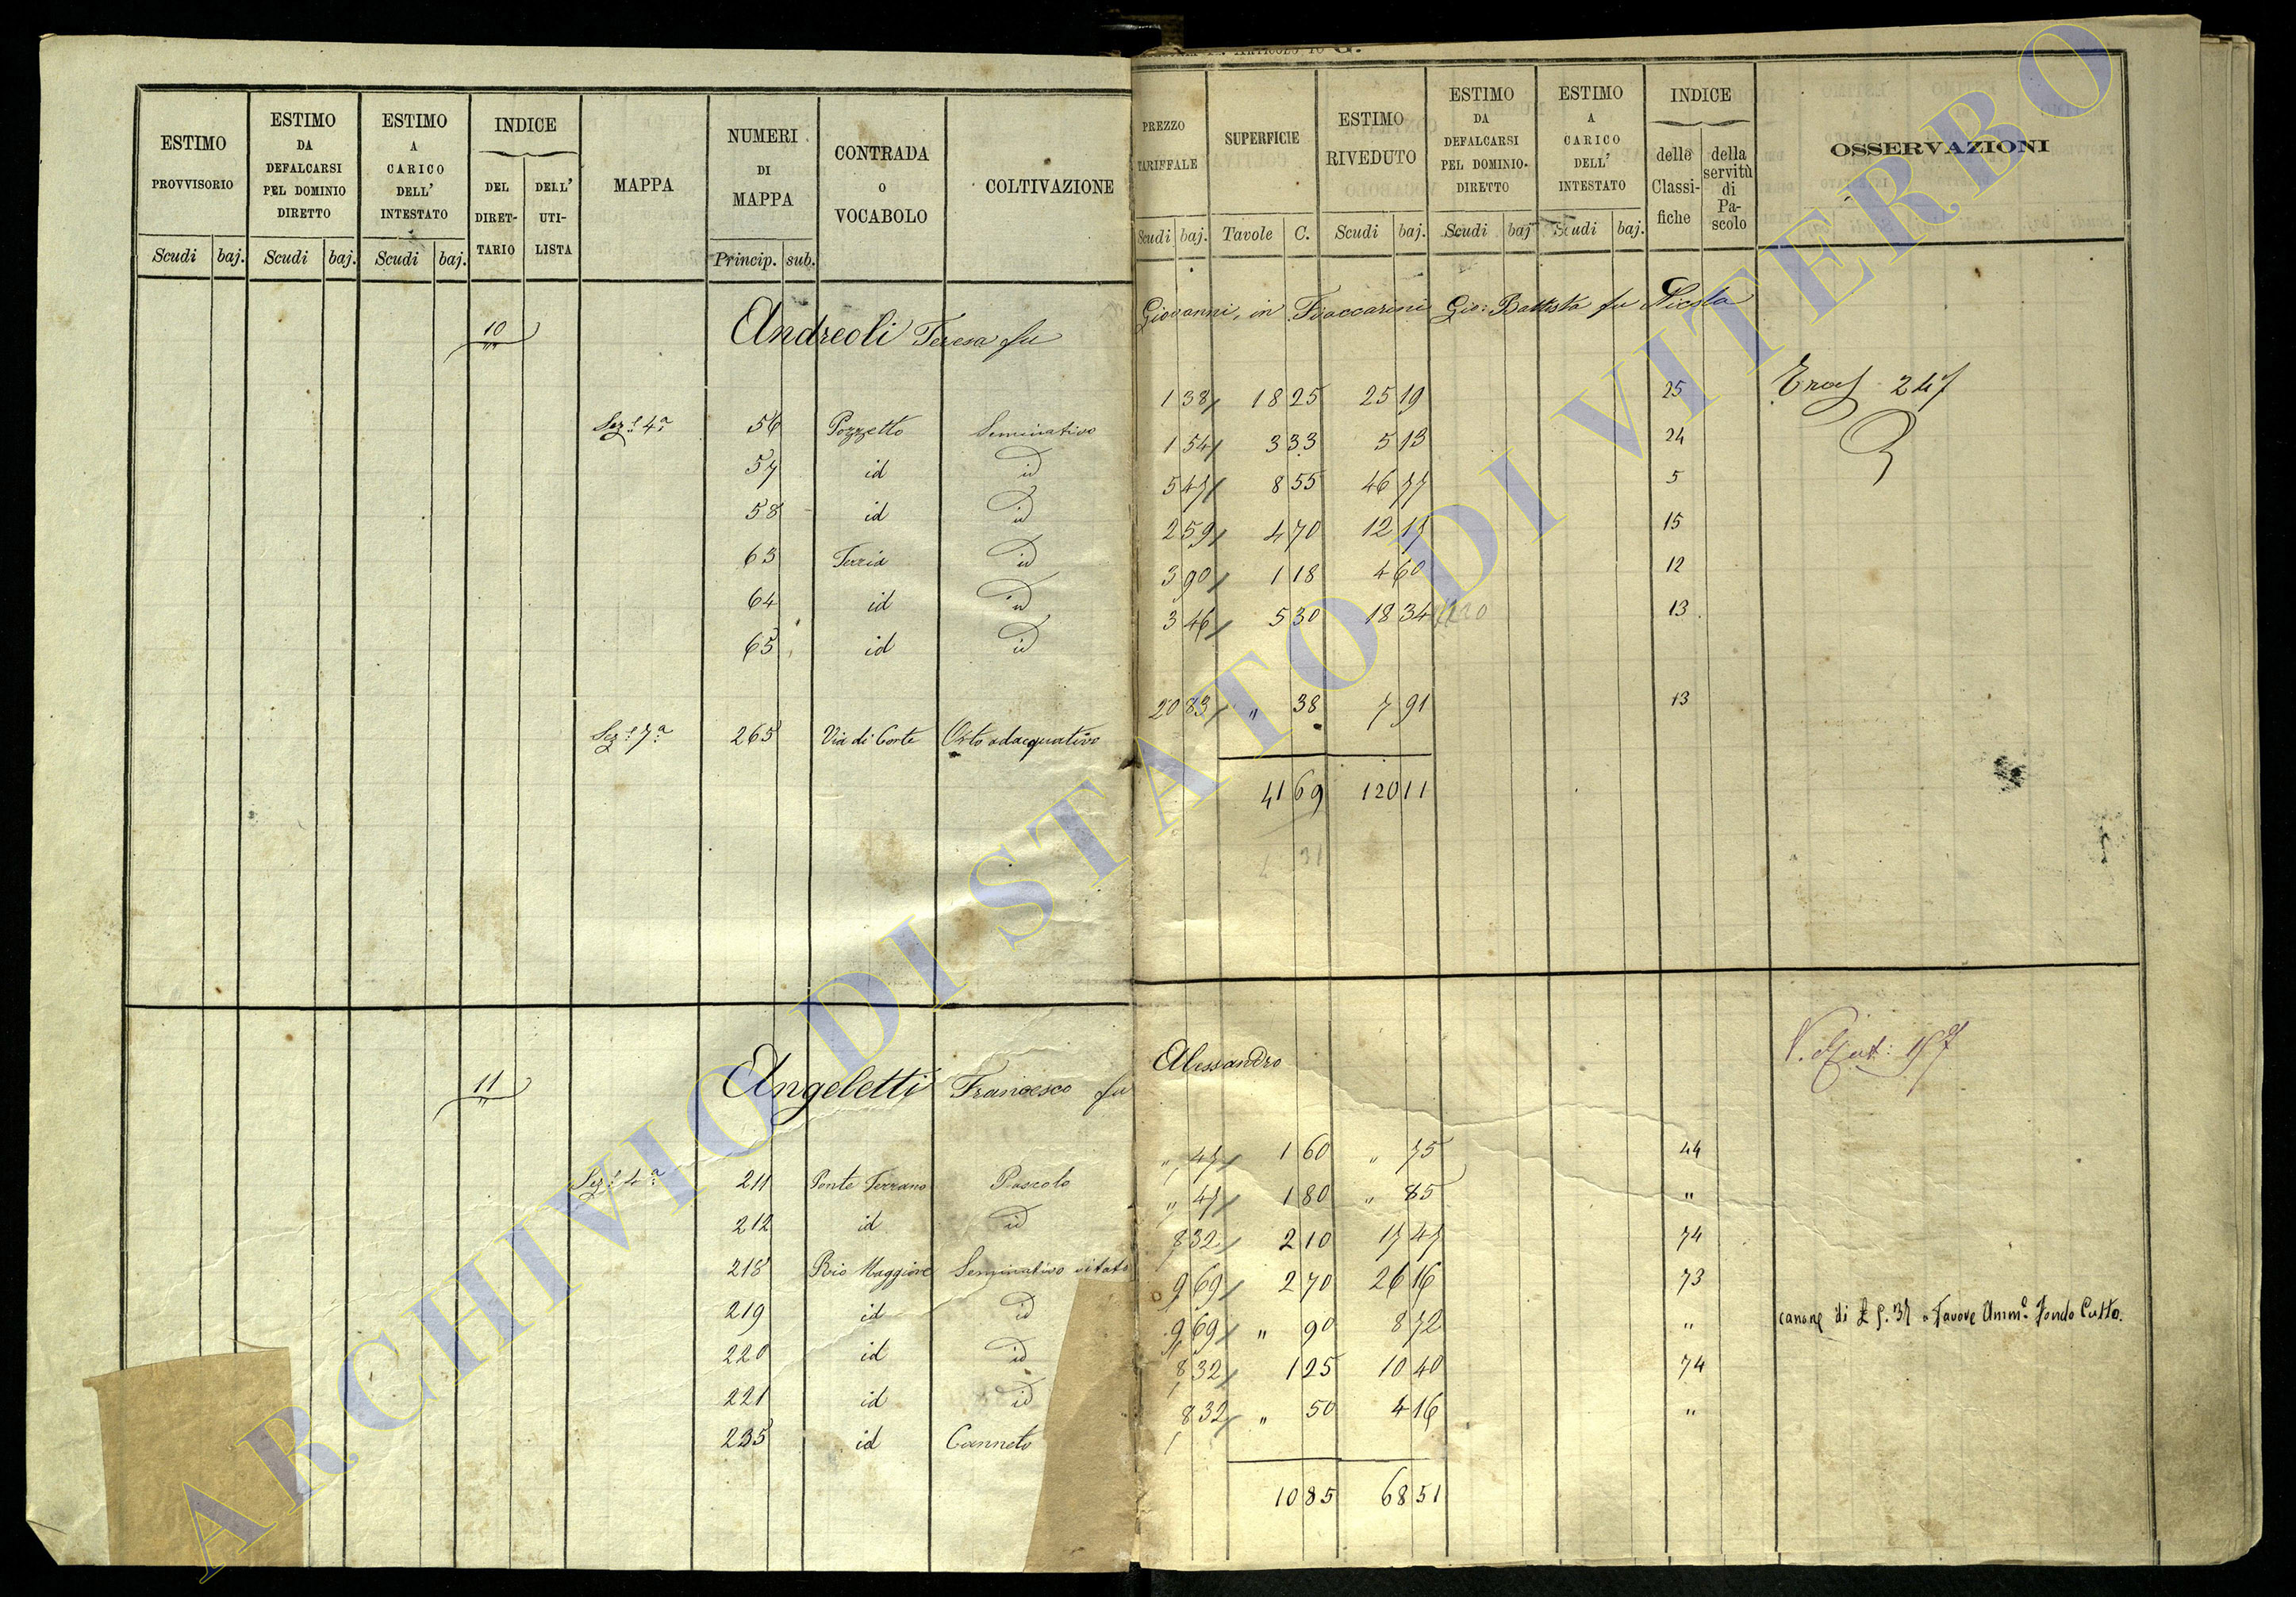 ARTICOLO 10 G.
ESTIMO PROVVISORIO | ESTIMO DA DEFALCARSI PEL DOMINIO DIRETTO | ESTIMO A CARICO DELL' INTESTATO | INDICE DEL DIRET-TARIO | DELL' UTI-LISTA | MAPPA | NUMERI DI MAPPA | CONTRADA O VOCABOLO | COLTIVAZIONE | PREZZO TARIFFALE | SUPERFICIE | ESTIMO RIVEDUTO | ESTIMO DA DEFALCARSI PEL DOMINIO DIRETTO | ESTIMO A CARICO DELL' INTESTATO | INDICE delle Classi-fiche | della servitù di Pa-scolo | OSSERVAZIONI
Scudi baj. | Scudi baj. | Scudi baj. | Princip. sub. | Scudi baj. | Tavole C. | Scudi baj. | Scudi baj | Scudi baj.
10 Andreoli Teresa fu Giovanni, in Fioccarini Gio: Battista fu Nicola
Sez.e 4a 56 Pozzetto Seminativo 1 38 18 25 25 19 25 Tras 247
57 id id 1 54 3 33 5 13 24
58 id id 5 47 8 55 46 77 5
63 Terria id 2 59 4 70 12 17 15
64 id id 3 90 1 18 4 60 12
65 id id 3 46 5 30 18 34 13
Sez.e 7a 265 Via di Corte Orto adacquativo 20 83 " 38 7 91 13
41 69 120 11
11 Angeletti Francesco fu Alessandro
Sez.e 4a 211 Ponte Terrano Pascolo " 47 1 60 " 75 44
212 id id " 47 1 80 " 85 "
218 Rio Maggiore Seminativo vitato 8 32 2 10 17 47 74
219 id id 9 69 2 70 26 16 73
220 id id 9 69 " 90 8 72 " canone di £ 5.37 a favore Amm.e Fondo Culto.
221 id id 8 32 1 25 10 40 74
235 id Canneto 8 32 " 50 4 16 "
10 85 68 51
ARCHIVIO DI STATO DI VITERBO